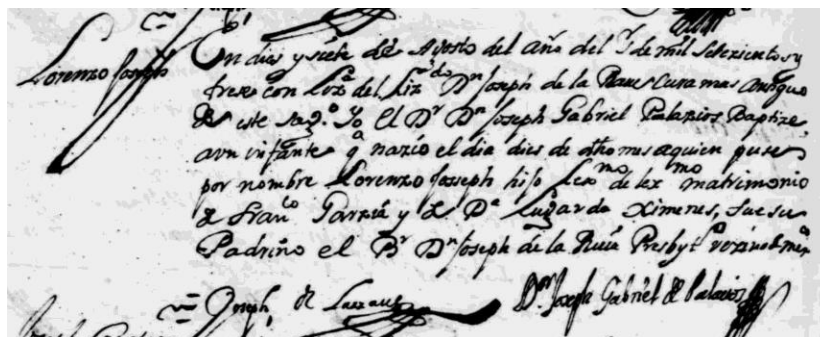 Lorenzo Joseph
En dies y siete de Agosto del año del S.r de mil setezientos y
trese con liz.a del Liz.do D.n Joseph de la Cura mas antiguo
de este Sag.o Yo El D.r D.n Joseph Gabriel Palazios Baptize
a un infante q nazio el dia dies de dho mes a quien puse
por nombre Lorenzo Joseph hijo lex.mo de lex.mo matrimonio
de Fran.co Garzia y de D.a Lugarda Ximenes, fue su
Padrino el B.r D.n Joseph de la Presbyt.o vezino de
Joseph de D.r Joseph Gabriel de Palacios